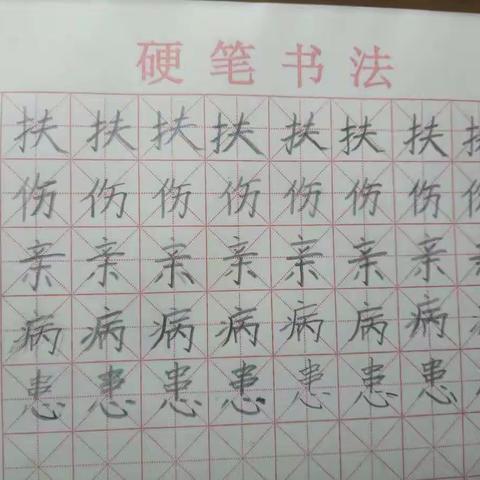 硬笔书法
扶扶扶扶扶扶扶扶
伤伤伤伤伤伤伤伤
亲亲亲亲亲亲亲亲
病病病病病病病病
患患患患患患患患